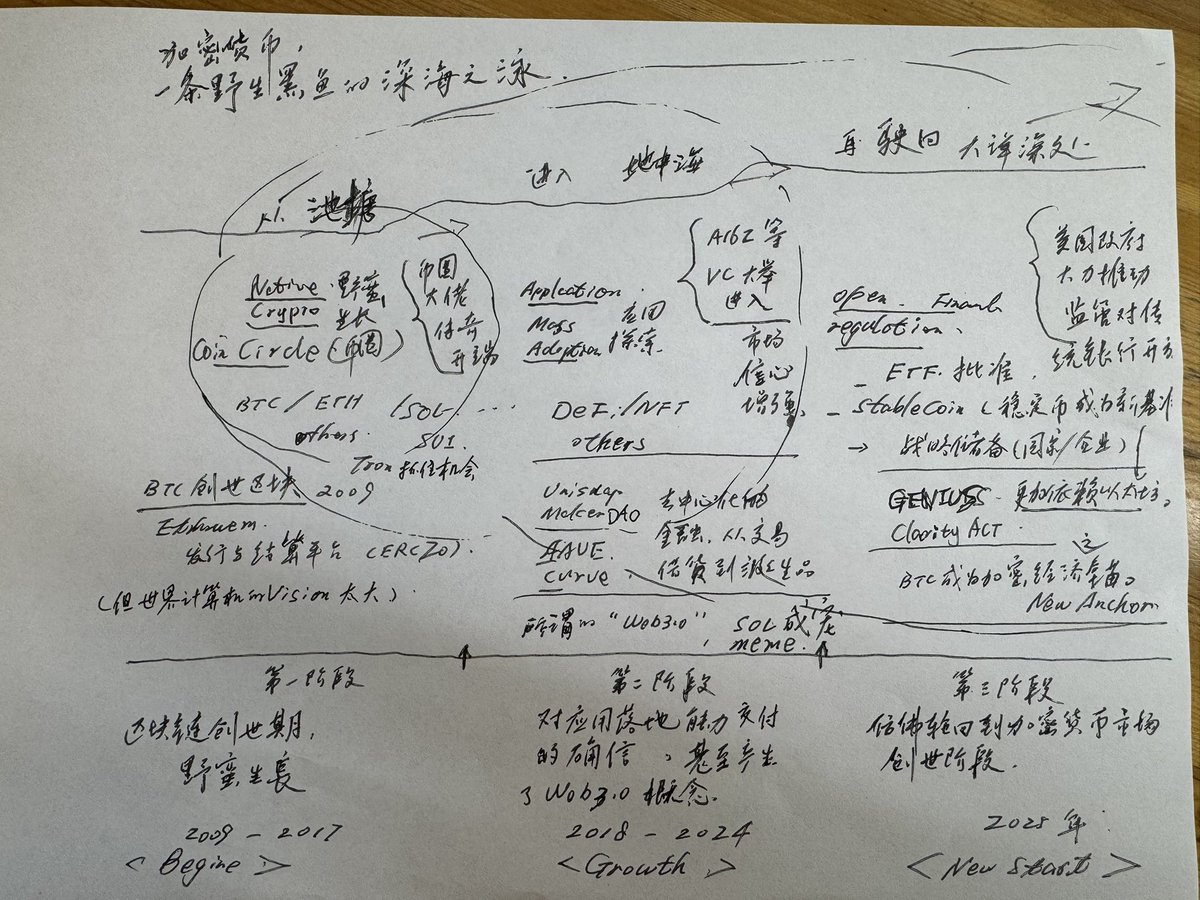 加密货币,
一条野生黑鱼的深海之泳.
从 池塘
进入 地中海
再 驶回 大洋深处
Native. 野蛮
Crypto 生长
Coin Circle (币圈)
币圈
大佬
传奇
开端
BTC / ETH / SOL ...
others. SUI.
Tron 抓住机会
BTC 创世区块 2009
发行与结算平台 (ERC20).
(但世界计算机的Vision太大)
Application.
Mass 应用
Adoption 探索
A16Z 等
VC 大举
进入
市场
信心
增强
DeFi / NFT
others
Uniswap
MakerDAO
AAVE
Curve
去中心化的
金融, 从交易
借贷到衍生品
所谓的 "Web3.0", SOL 成了
meme.
open. Financial
regulation.
美国政府
大力推动
监管对传
统银行开放
- ETF. 批准,
- StableCoin (稳定币成为新基准
→ 战略储备 (国家/企业)
GENIUS - 更加依赖以太坊。
Clarity ACT
BTC成为加密经济储备。
New Anchor
第一阶段
区块链创世期,
野蛮生長
2009 - 2017
< Begine >
第二阶段
对应用落地能力交付
的确信, 甚至产生
了Web3.0 概念.
2018 - 2024
< Growth >
第三阶段
仿佛轮回到加密货币市场
创世阶段.
2025 年.
< New Start >